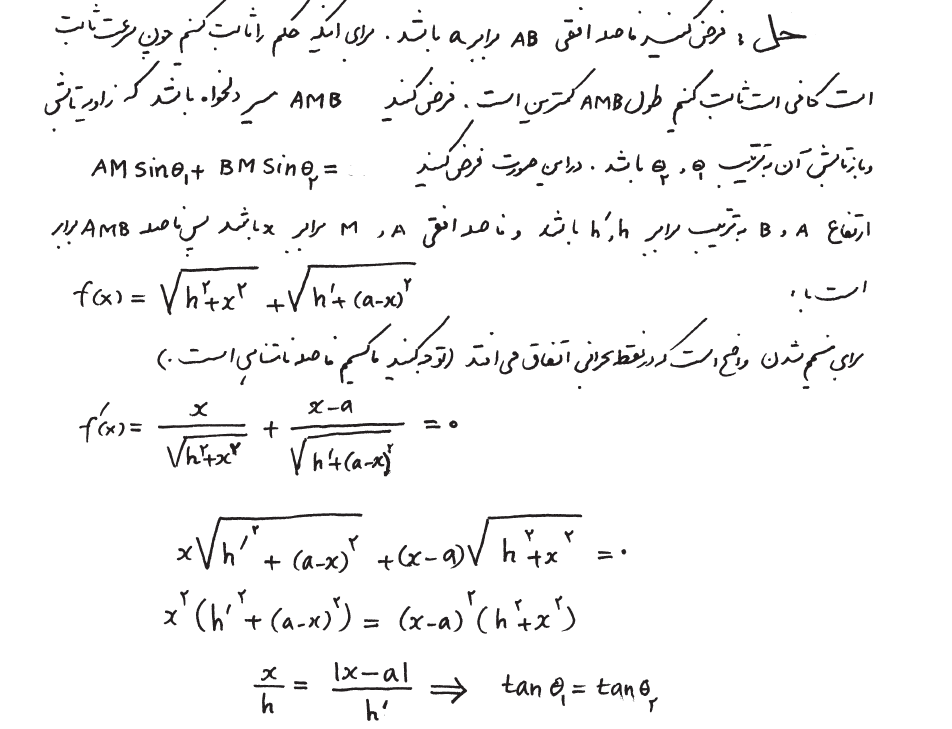 حل: فرض کنید فاصله افقی AB برابر a باشد. برای اینکه حکم را ثابت کنیم چون سرعت ثابت
است کافی است ثابت کنیم طول AMB کمترین است. فرض کنید AMB مسیر دلخواه باشد که زاویه تابش
و بازتابش آن به ترتیب θ₁ و θ₂ باشد. در این صورت فرض کنید AM Sinθ₁ + BM Sinθ₂ =
ارتفاع A و B به ترتیب برابر h و h' باشد و فاصله افقی A و M برابر x باشد پس فاصله AMB برابر
است با:
f(x) = √(h²+x²) + √(h'+(a-x)²)
برای مینیمم شدن واضح است که در نقطه بحرانی اتفاق می افتد (توجه کنید ماکسیمم فاصله نامتناهی است.)
f'(x) = x/√(h²+x²) + (x-a)/√(h'+(a-x)²) = ۰
x√(h'²+(a-x)²) + (x-a)√(h²+x²) = ۰
x²(h'²+(a-x)²) = (x-a)²(h²+x²)
x/h = |x-a|/h' ⇒ tan θ₁ = tan θ₂